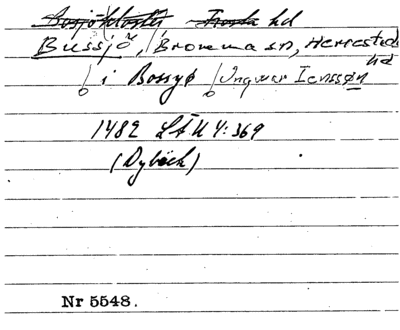 Bosjökloster Frosta hd
Bussjö, Bromma sn, Herrestads
hd
i Bossyø Ingwar Ienssøn
1482 LÅU 4:369
(Dybäck)
Nr 5548.